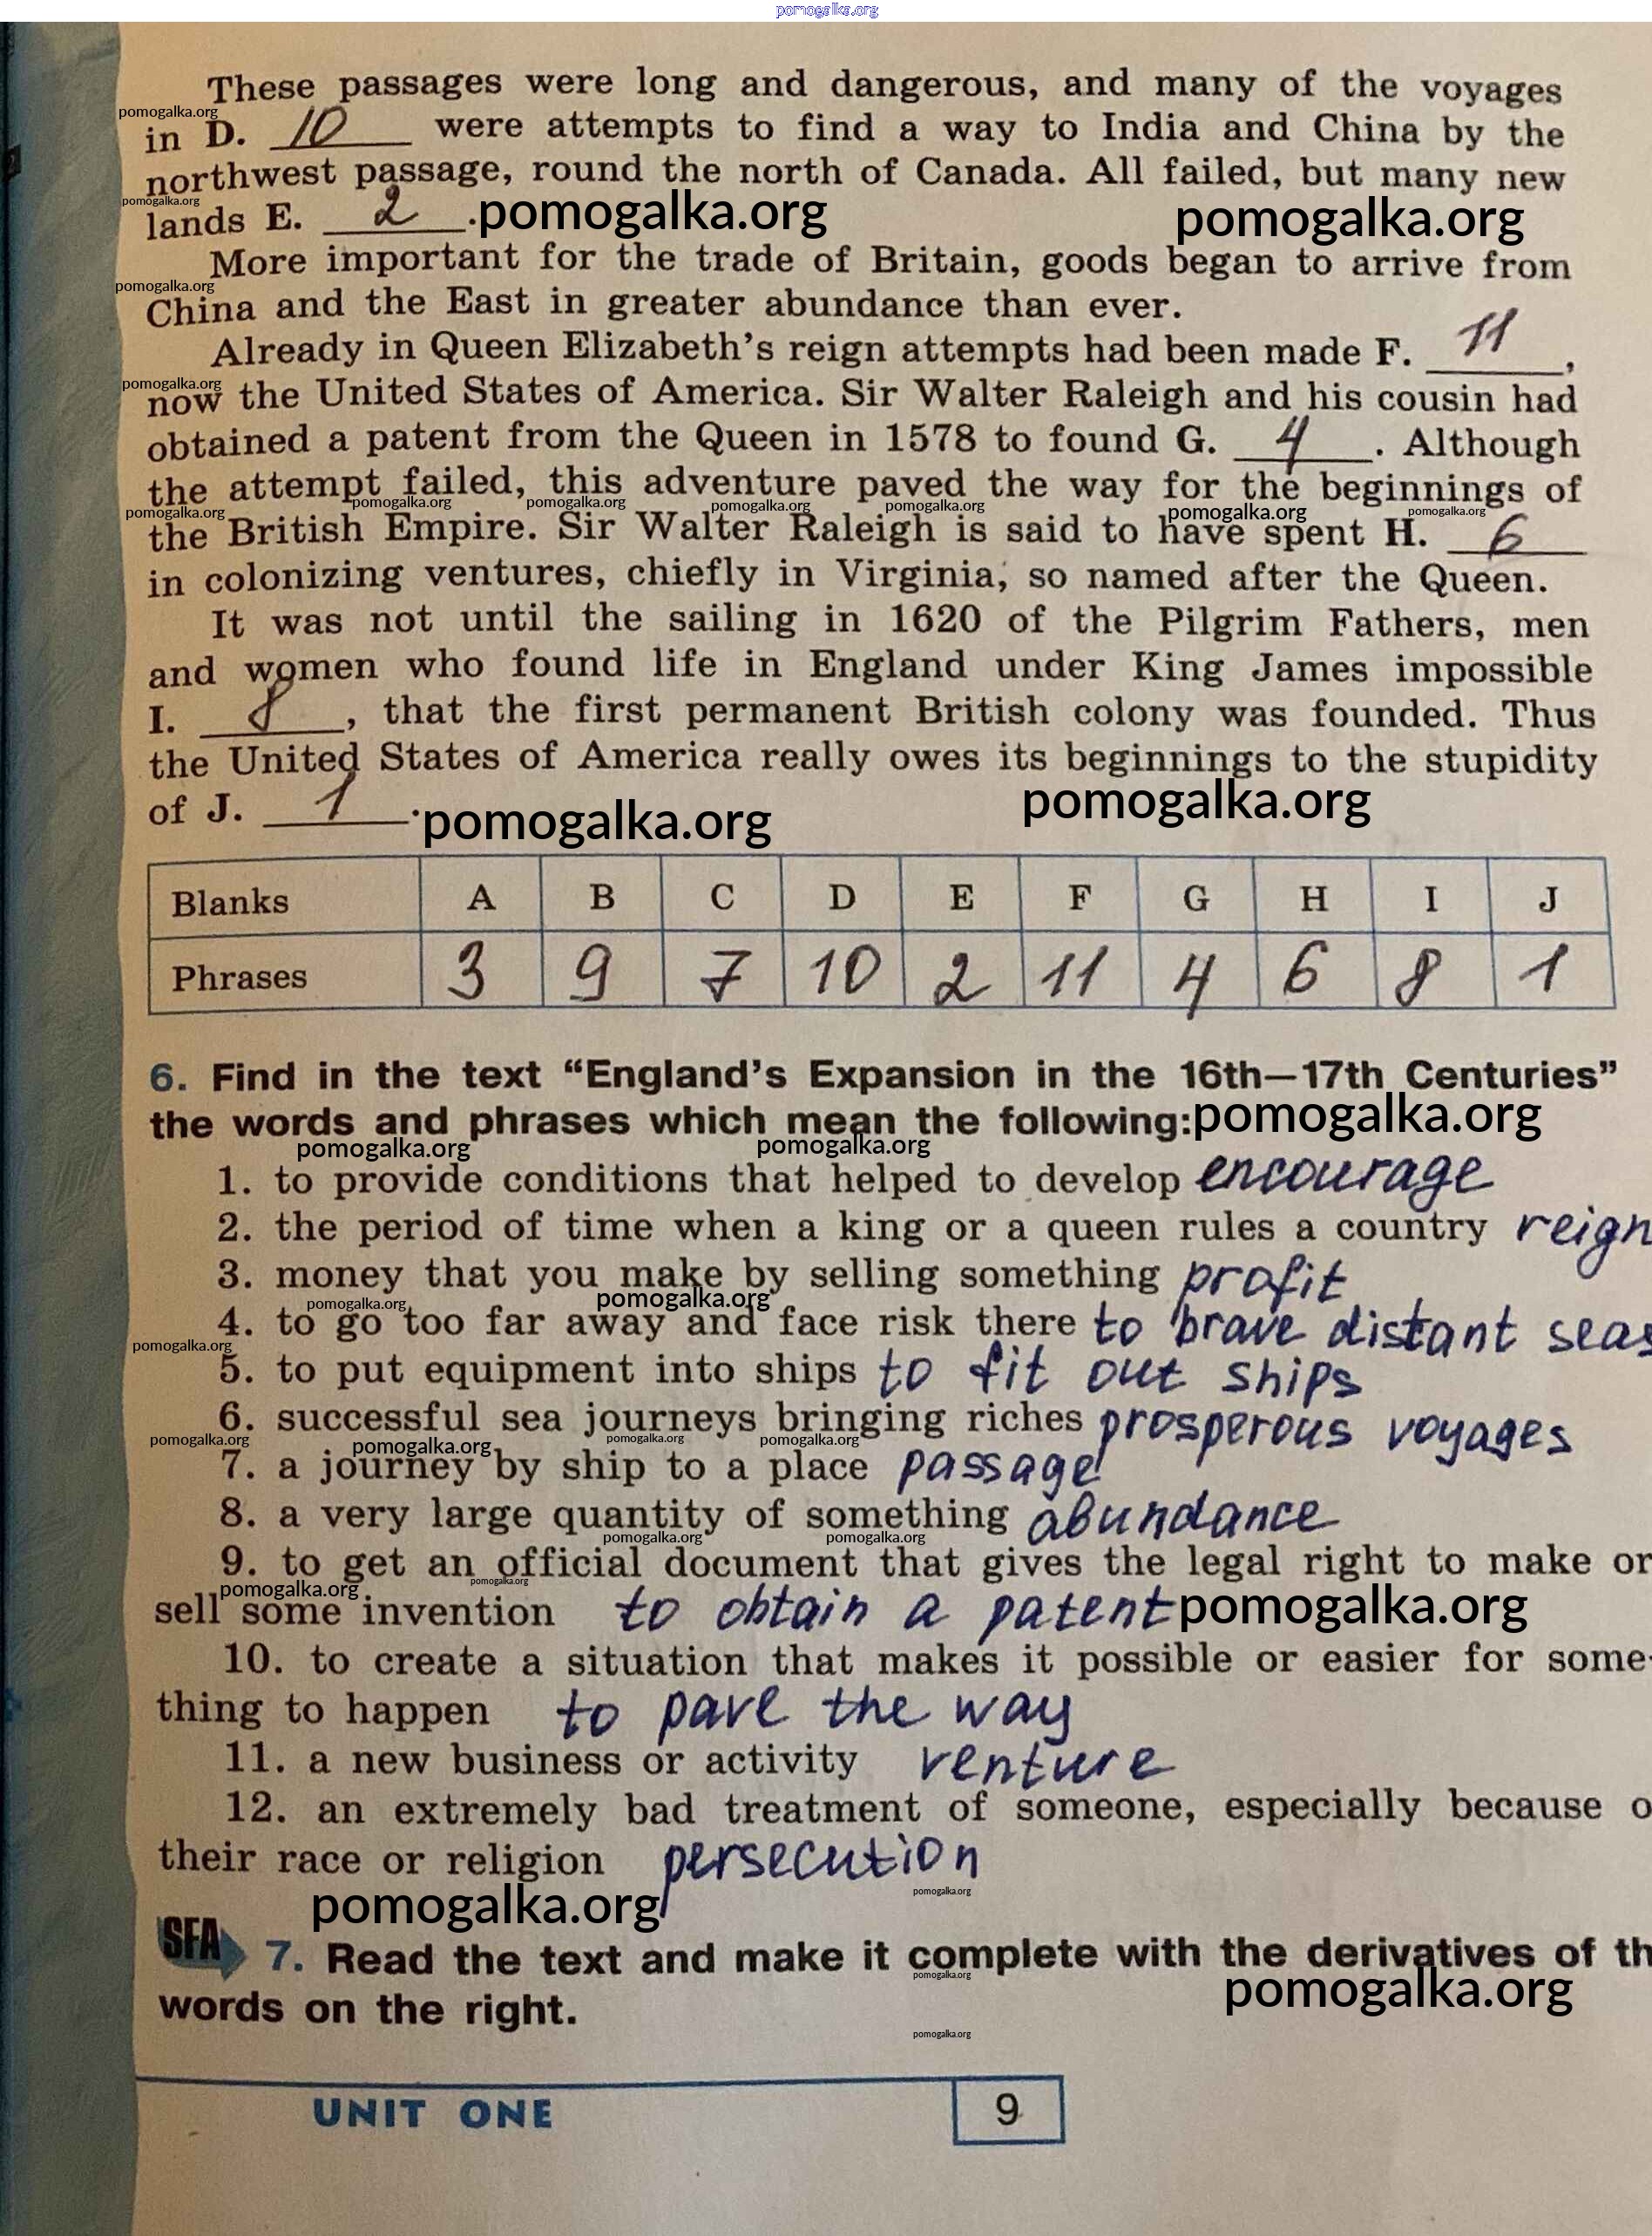 pomogalka.org
These passages were long and dangerous, and many of the voyages
pomogalka.org
in D. 10 were attempts to find a way to India and China by the
northwest passage, round the north of Canada. All failed, but many new
pomogalka.org
lands E. 2 . pomogalka.org pomogalka.org
More important for the trade of Britain, goods began to arrive from
pomogalka.org
China and the East in greater abundance than ever.
Already in Queen Elizabeth's reign attempts had been made F. 11 ,
pomogalka.org
now the United States of America. Sir Walter Raleigh and his cousin had
obtained a patent from the Queen in 1578 to found G. 4 . Although
the attempt failed, this adventure paved the way for the beginnings of
pomogalka.org pomogalka.org pomogalka.org pomogalka.org pomogalka.org pomogalka.org pomogalka.org
the British Empire. Sir Walter Raleigh is said to have spent H. 6
in colonizing ventures, chiefly in Virginia, so named after the Queen.
It was not until the sailing in 1620 of the Pilgrim Fathers, men
and women who found life in England under King James impossible
I. 8 , that the first permanent British colony was founded. Thus
the United States of America really owes its beginnings to the stupidity
of J. 1 . pomogalka.org pomogalka.org
Blanks A B C D E F G H I J
Phrases 3 9 7 10 2 11 4 6 8 1
6. Find in the text “England's Expansion in the 16th—17th Centuries”
the words and phrases which mean the following: pomogalka.org
pomogalka.org pomogalka.org
1. to provide conditions that helped to develop encourage
2. the period of time when a king or a queen rules a country reign
3. money that you make by selling something profit
pomogalka.org pomogalka.org
4. to go too far away and face risk there to brave distant seas
pomogalka.org
5. to put equipment into ships to fit out ships
6. successful sea journeys bringing riches prosperous voyages
pomogalka.org pomogalka.org pomogalka.org pomogalka.org
7. a journey by ship to a place passage
8. a very large quantity of something abundance
pomogalka.org pomogalka.org
9. to get an official document that gives the legal right to make or
pomogalka.org pomogalka.org
sell some invention to obtain a patent pomogalka.org
10. to create a situation that makes it possible or easier for some-
thing to happen to pave the way
11. a new business or activity venture
12. an extremely bad treatment of someone, especially because o
their race or religion persecution
pomogalka.org pomogalka.org
SFA 7. Read the text and make it complete with the derivatives of th
pomogalka.org pomogalka.org
words on the right.
pomogalka.org
UNIT ONE 9